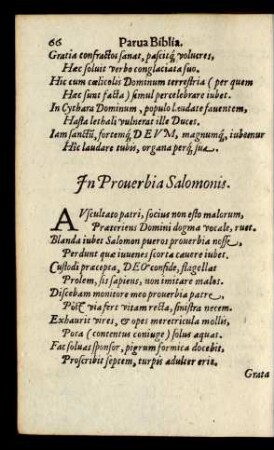 66 Parua Biblia.
Gratia confractos sanat, pascitq; volucres,
Hac soluit verbo conglaciata suo.
Hic cum cœlicolis Dominum terrestria (per quem
Hæc sunt facta) simul percelebrare iubet.
In Cythara Dominum, populo laudate fauentem,
Hasta lethali vulnerat ille Duces.
Iam sanctũ, fortemq; DEVM, magnumq, iubemur
Hic laudare tubis, organa perq; sua.
In Prouerbia Salomonis.
AVscultato patri, socius non esto malorum,
Præteriens Domini dogma vocale, ruet.
Blanda iubet Salomon pueros prouerbia nosse,
Perdunt quæ iuuenes scorta cauere iubet.
Custodi præcepta, DEO confide, flagellat
Prolem, sis sapiens, non imitare malos.
Discebam monitore meo prouerbia patre,
Post via fert vitam recta, sinistra necem.
Exhaurit vires, & opes meretricula mollis,
Pota (contentus coniuge) solus aquas.
Fac soluas sponsor, pigrum formica docebit,
Proscribit septem, turpis adulter erit.
Grata